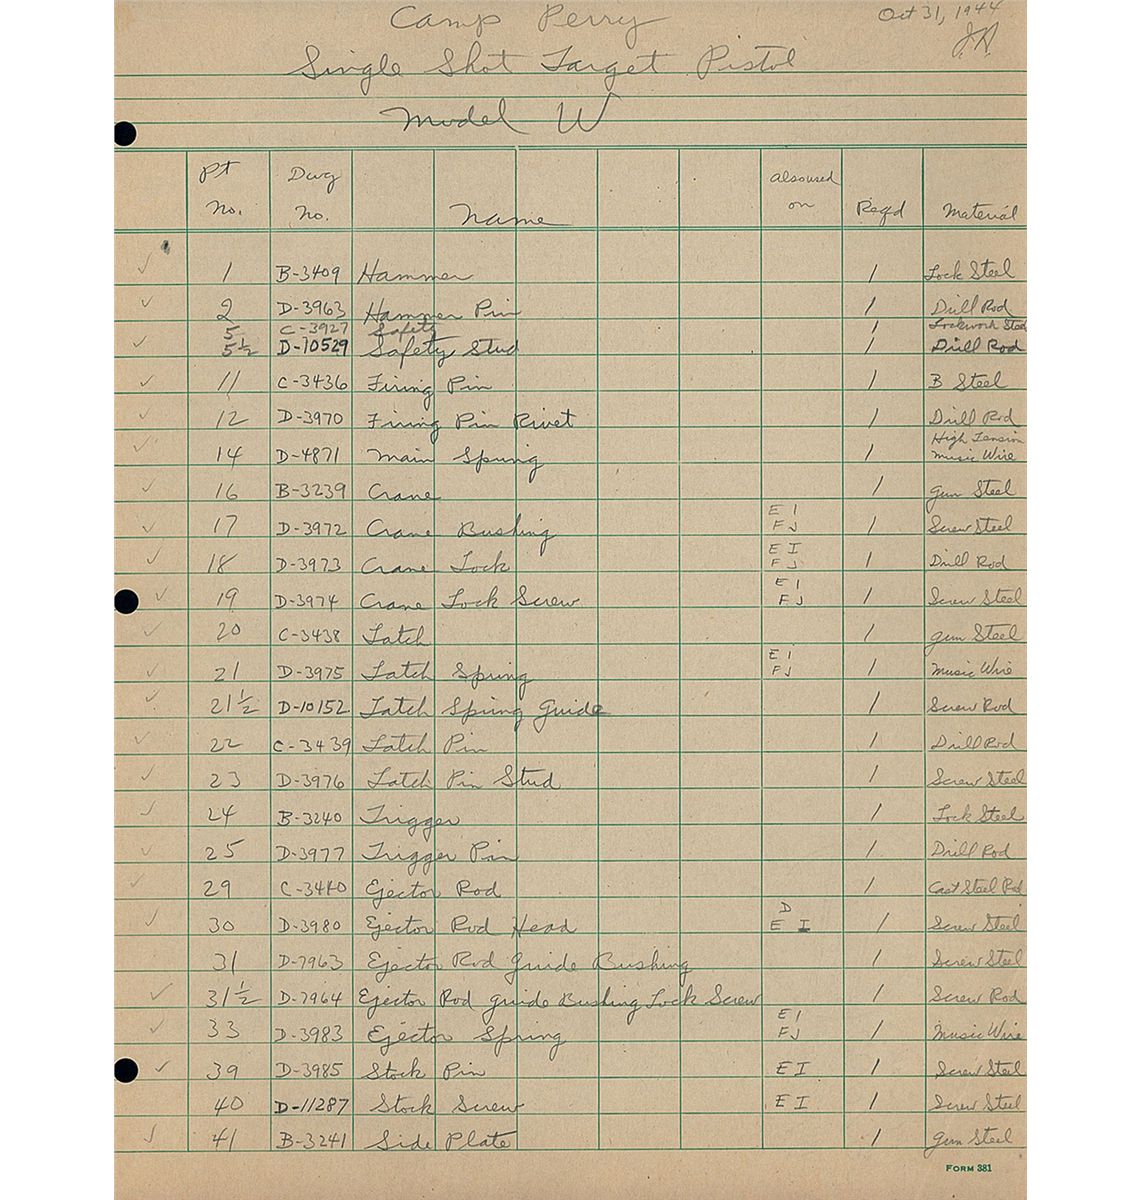 Camp Perry Oct 31, 1944
Single Shot Target Pistol J.R.
Model W
Pt Dwg alsoused
No. No. Name on Reqd Material
1 B-3409 Hammer 1 Lock Steel
2 D-3963 Hammer Pin 1 Drill Rod
5 C-3927 Safety 1 Lockwork Steel
5½ D-10529 Safety Stud 1 Drill Rod
11 C-3436 Firing Pin 1 B Steel
12 D-3970 Firing Pin Rivet 1 Drill Rod
High Tension
14 D-4871 Main Spring 1 Music Wire
16 B-3239 Crane 1 Gun Steel
E I
17 D-3972 Crane Bushing F J 1 Screw Steel
E I
18 D-3973 Crane Lock F J 1 Drill Rod
E I
19 D-3974 Crane Lock Screw F J 1 Screw Steel
20 C-3438 Latch 1 Gun Steel
E I
21 D-3975 Latch Spring F J 1 Music Wire
21½ D-10152 Latch Spring Guide 1 Screw Rod
22 C-3439 Latch Pin 1 Drill Rod
23 D-3976 Latch Pin Stud 1 Screw Steel
24 B-3240 Trigger 1 Lock Steel
25 D-3977 Trigger Pin 1 Drill Rod
29 C-3440 Ejector Rod 1 Cast Steel Rod
D
30 D-3980 Ejector Rod Head E I 1 Screw Steel
31 D-7963 Ejector Rod Guide Bushing 1 Screw Steel
31½ D-7964 Ejector Rod Guide Bushing Lock Screw 1 Screw Rod
E I
33 D-3983 Ejector Spring F J 1 Music Wire
39 D-3985 Stock Pin E I 1 Screw Steel
40 D-11287 Stock Screw E I 1 Screw Steel
41 B-3241 Side Plate 1 Gun Steel
FORM 381